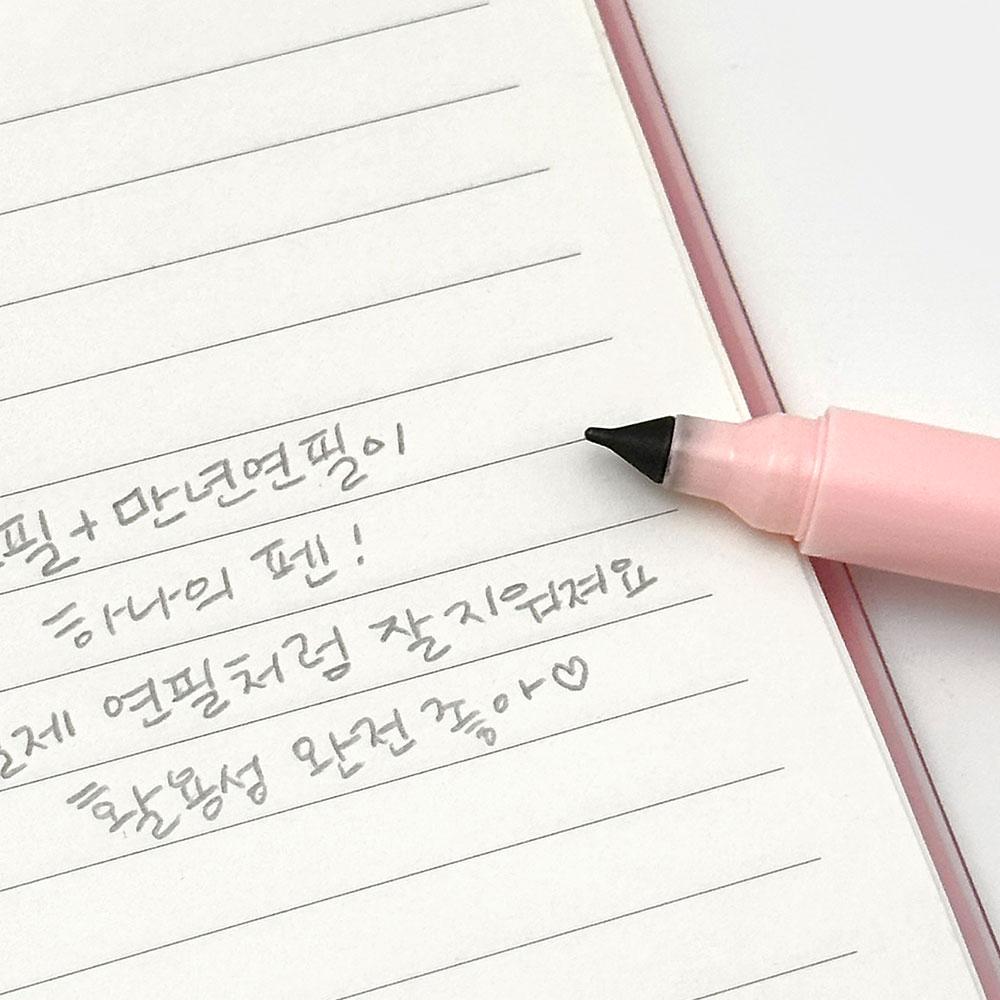 필+ 만년연필이
하나의 펜!
실제 연필처럼 잘지워져요
활용성 완전 좋아♡